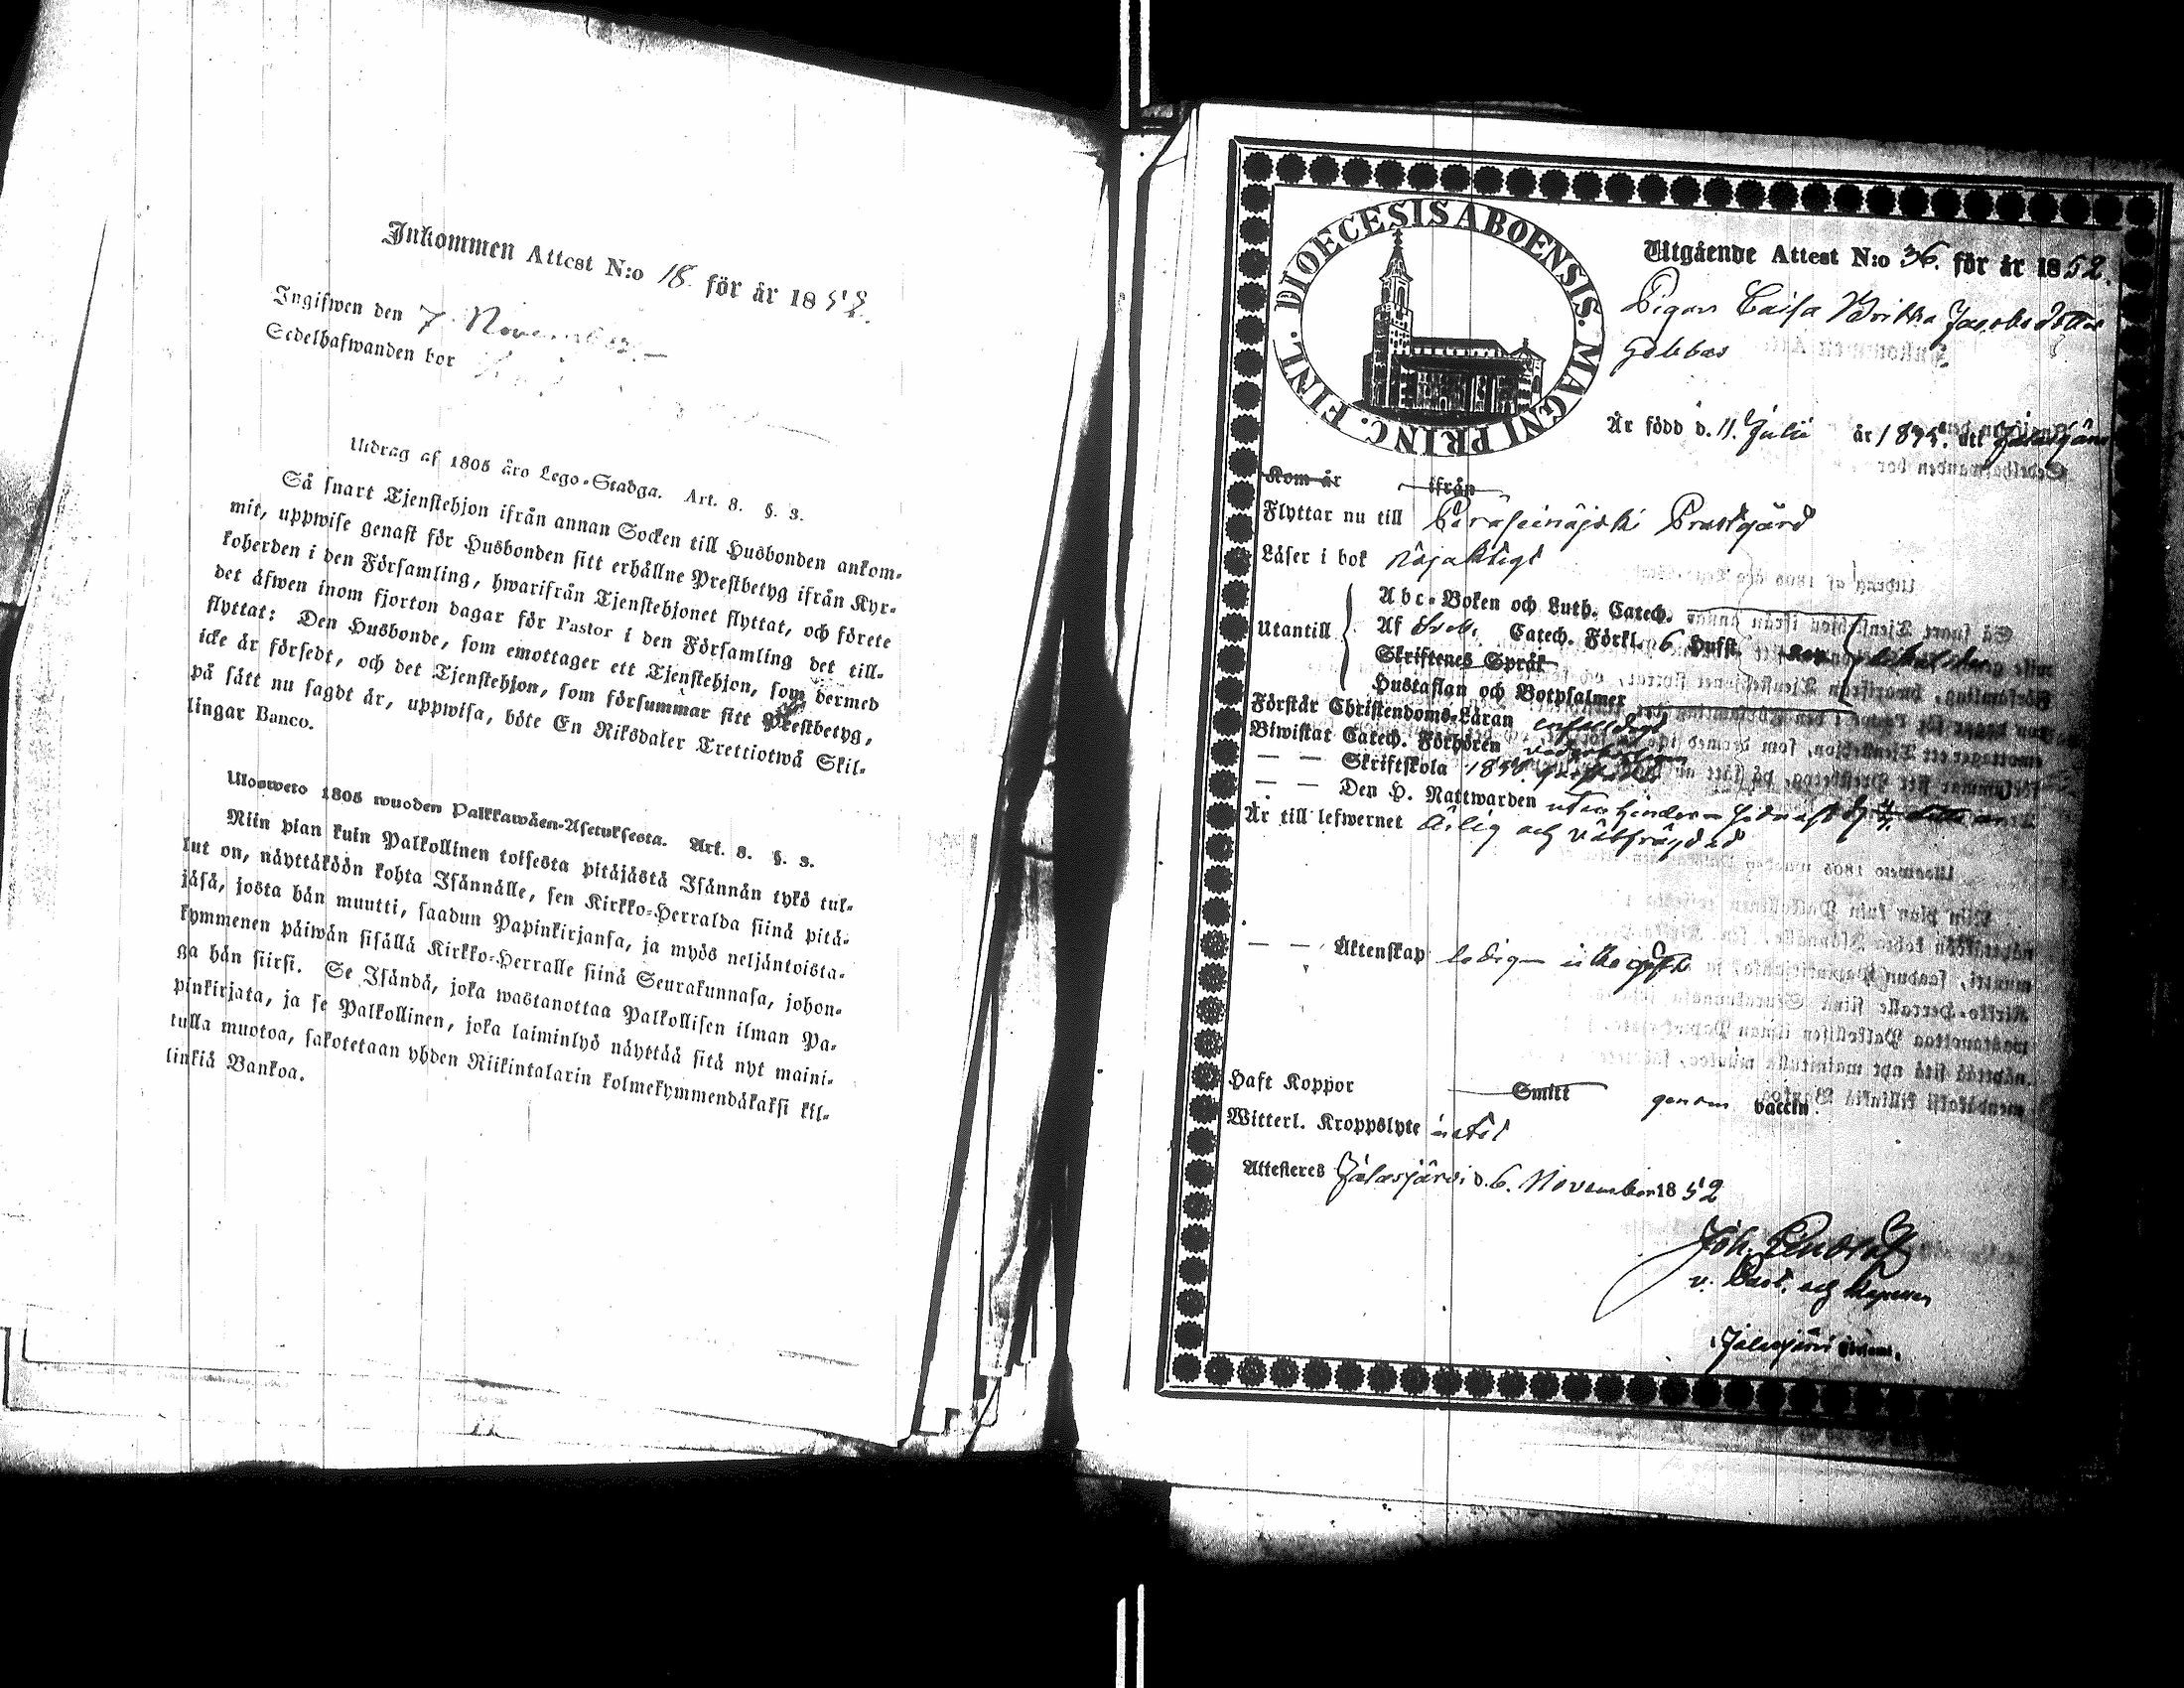 Inkommen Attest N:o 18. för år 1852.
Ingifwen den 7. November.
Sedelhafwanden bor
Utdrag af 1805 åro Lego-Stadga. Art. 8. §. 3.
Så snart Tjenstehjon ifrån annan Socken till Husbonden ankom-
mit, uppwise genast för Husbonden sitt erhållne Prestbetyg ifrån Kyr-
koherden i den Församling, hwarifrån Tjenstehjonet flyttat, och förete
det äfwen inom fjorton dagar för Pastor i den Församling det till-
flyttat: Den Husbonde, som emottager ett Tjenstehjon, som dermed
icke är försedt, och det Tjenstehjon, som försummar sitt Prestbetyg,
på sätt nu sagdt är, uppwisa, böte En Riksdaler Trettiotwå Skil-
lingar Banco.
Ulosweto 1805 wuoden Palkkawäen-Asetuksesta. Art. 8. §. 3.
Niin pian kuin Palkollinen toisesta pitäjästä Isännän tykö tul-
lut on, näyttäköön kohta Isännälle, sen Kirkko-Herralda siinä pitä-
jäsä, josta hän muutti, saadun Papinkirjansa, ja myös neljäntoista-
kymmenen päiwän sisällä Kirkko-Herralle siinä Seurakunnasa, johon-
ga hän siirsi. Se Isändä, joka wastanottaa Palkollisen ilman Pa-
pinkirjata, ja se Palkollinen, joka laiminlyö näyttää sitä nyt maini-
tulla muotoa, sakotetaan yhden Riikintalarin kolmekymmendäkaksi kil-
linkiä Bankoa.
DIOECESIS ABOENSIS. MAGNI PRINC. FINL.
Utgående Attest N:o 36. för år 1852.
Pigan Caisa Brikka Jacobsdotter
Är född d. 11. Julii år 18 uti
Kom år ifrån
Flyttar nu till Peräseinäjoki Prestgård
Läser i bok nöjaktigt
Utantill
Abc-Boken och Luth. Catech.
Af Catech. Förkl. 6 Hufst.
Skriftenes Språk
Hustaflan och Botpsalmer
Förstår Christendoms-Läran
Biwistat Catech. Förhören
— — Skriftskola
— — Den H. Nattwarden utan hinder
Är till lefwernet ärlig och välfrägdad
— — Äktenskap ledig
Haft Koppor Smitt genom vaccin.
Witterl. Kroppslyte intet
Attesteres Jalasjärvi d. 6. November 1852
Joh.
v. Past. och
Jalasjärvi